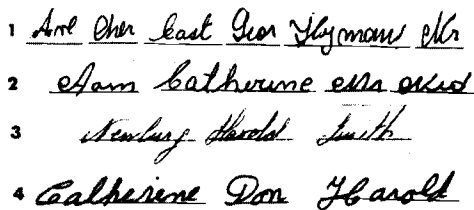 1 Ave Cher East Geor Hyman Mr
2 Adam Catherine Mr Kid
3 Newburg Harold Smith
4 Catherine Don Harold